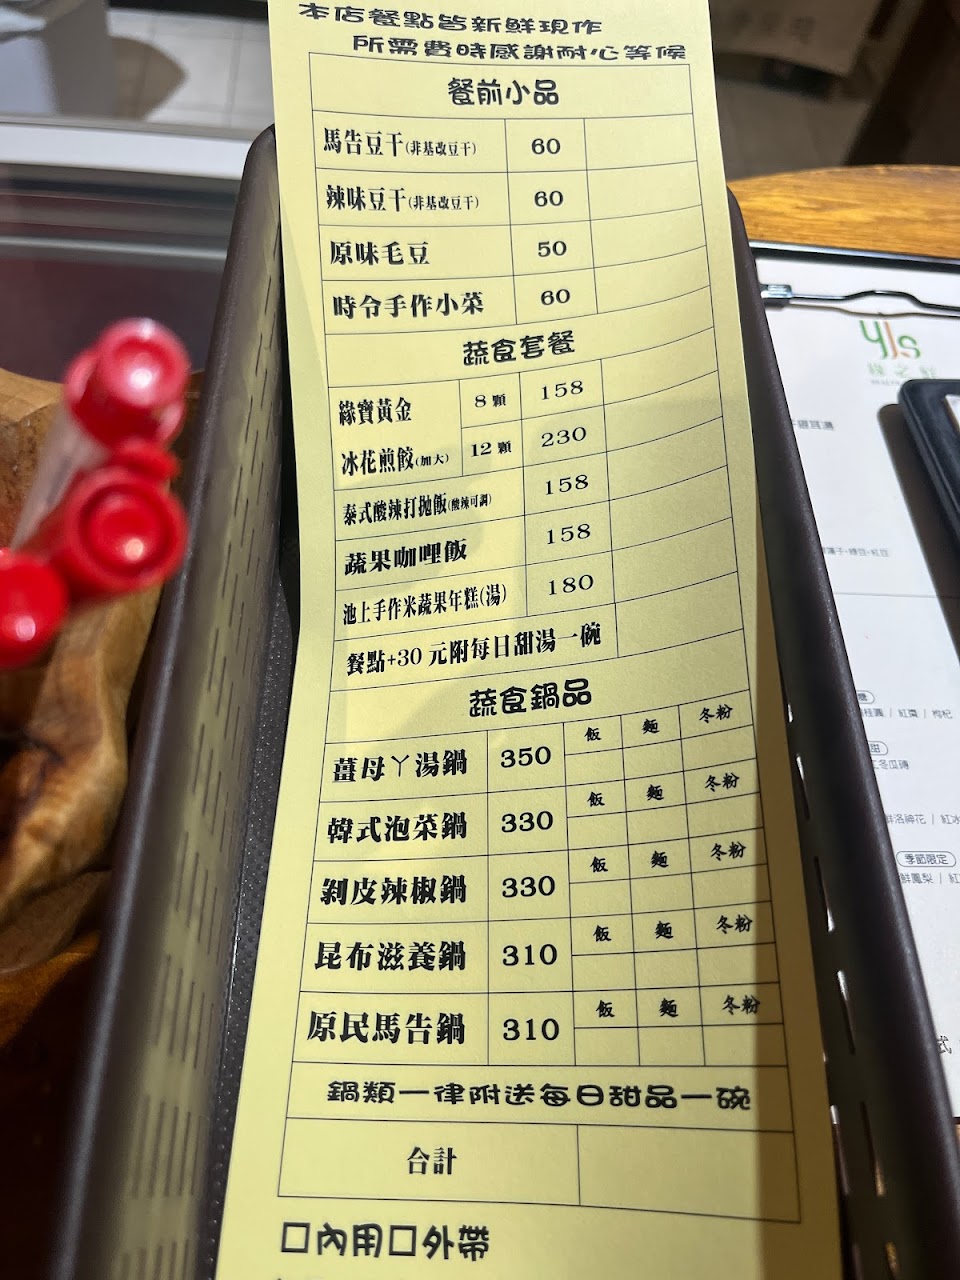 本店餐點皆新鮮現作
所需費時感謝耐心等候
餐前小品
馬告豆干(非基改豆干) 60
辣味豆干(非基改豆干) 60
原味毛豆 50
時令手作小菜 60
蔬食套餐
綠寶黃金 8顆 158
冰花煎餃(加大) 12顆 230
泰式酸辣打拋飯(酸辣可調) 158
蔬果咖哩飯 158
池上手作米蔬果年糕(湯) 180
餐點+30元附每日甜湯一碗
蔬食鍋品
薑母ㄚ湯鍋 350 飯 麵 冬粉
韓式泡菜鍋 330 飯 麵 冬粉
剝皮辣椒鍋 330 飯 麵 冬粉
昆布滋養鍋 310 飯 麵 冬粉
原民馬告鍋 310 飯 麵 冬粉
鍋類一律附送每日甜品一碗
合計
□內用□外帶
yjs
銀耳湯
子+綠豆+紅豆
糖
桂圓 / 紅棗 / 枸杞
甜
冬瓜磚
鮮洛神花 / 紅冰
季節限定
鮮鳳梨 / 紅
式